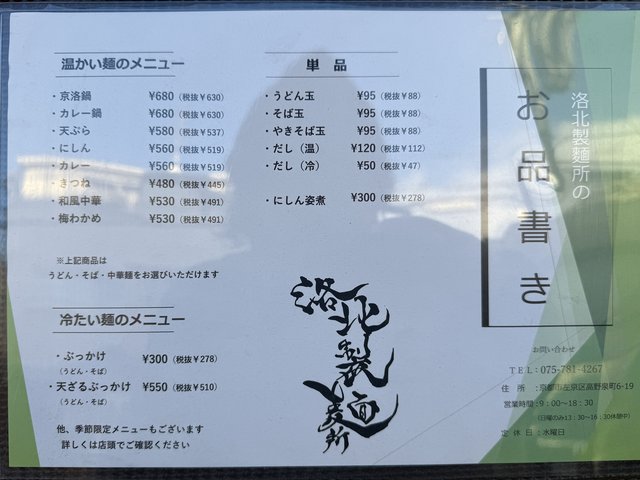 温かい麺のメニュー
・京洛鍋 ¥680（税抜￥630）
・カレー鍋 ¥680（税抜￥630）
・天ぷら ¥580（税抜￥537）
・にしん ¥560（税抜￥519）
・カレー ¥560（税抜￥519）
・きつね ¥480（税抜￥445）
・和風中華 ¥530（税抜￥491）
・梅わかめ ¥530（税抜￥491）
※上記商品は
うどん・そば・中華麺をお選びいただけます
冷たい麺のメニュー
・ぶっかけ ¥300（税抜￥278）
（うどん・そば）
・天ざるぶっかけ ¥550（税抜￥510）
（うどん・そば）
他、季節限定メニューもございます
詳しくは店頭でご確認ください
単品
・うどん玉 ¥95（税抜￥88）
・そば玉 ¥95（税抜￥88）
・やきそば玉 ¥95（税抜￥88）
・だし（温） ¥120（税抜￥112）
・だし（冷） ¥50（税抜￥47）
・にしん姿煮 ¥300（税抜￥278）
洛北製麺所
洛北製麺所の
お品書き
お問い合わせ
TEL：075-781-4267
住所：京都市左京区高野泉町6-19
営業時間：9：00～18：30
（日曜のみ13：30～16：30休憩中）
定休日：水曜日